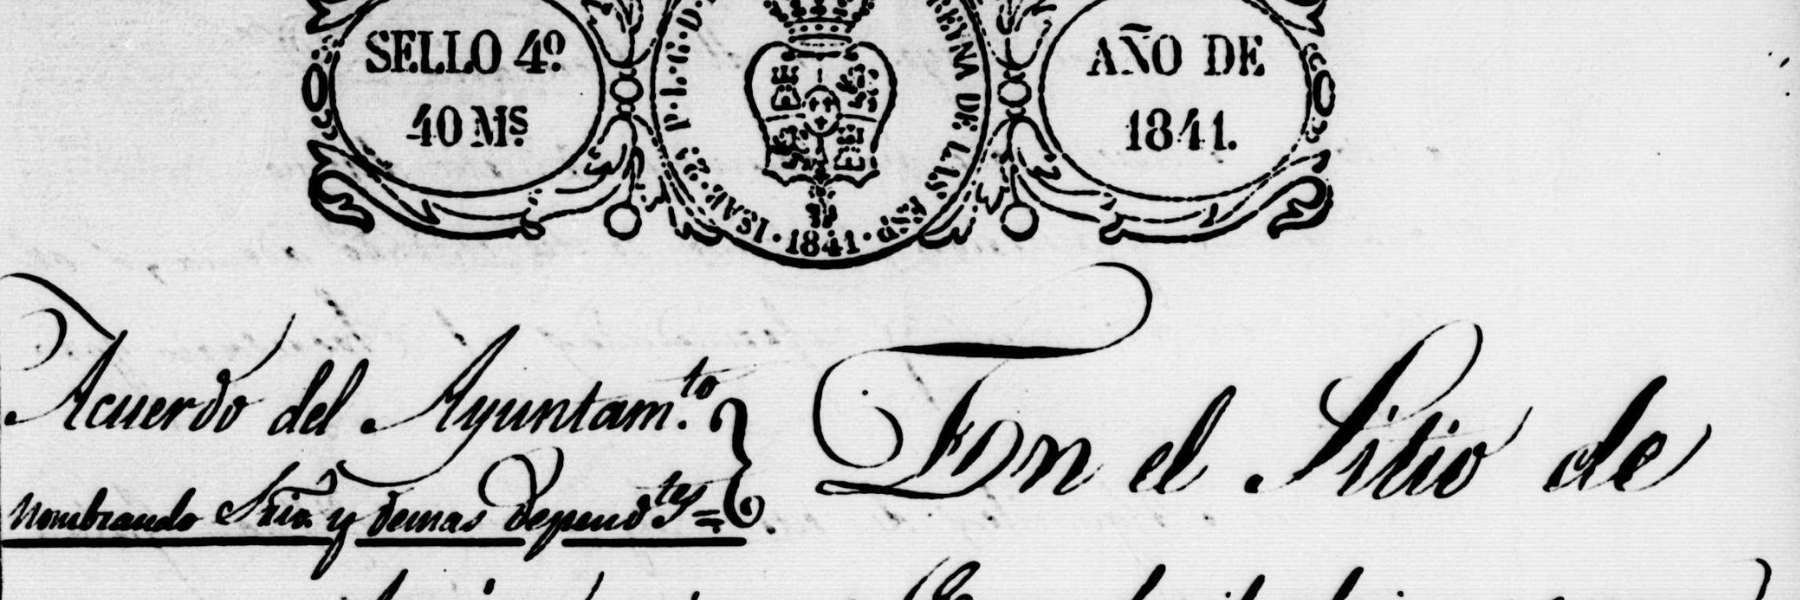 SELLO 4º
40 Mˢ
P.I.G.D.D. REYNA DE LAS ESP. 1841. ISAB. 2ª
AÑO DE
1841.
Acuerdo del Ayuntam.ᵗᵒ
nombrando Srio. y demas dependᵗᵉˢ =
En el Sitio de